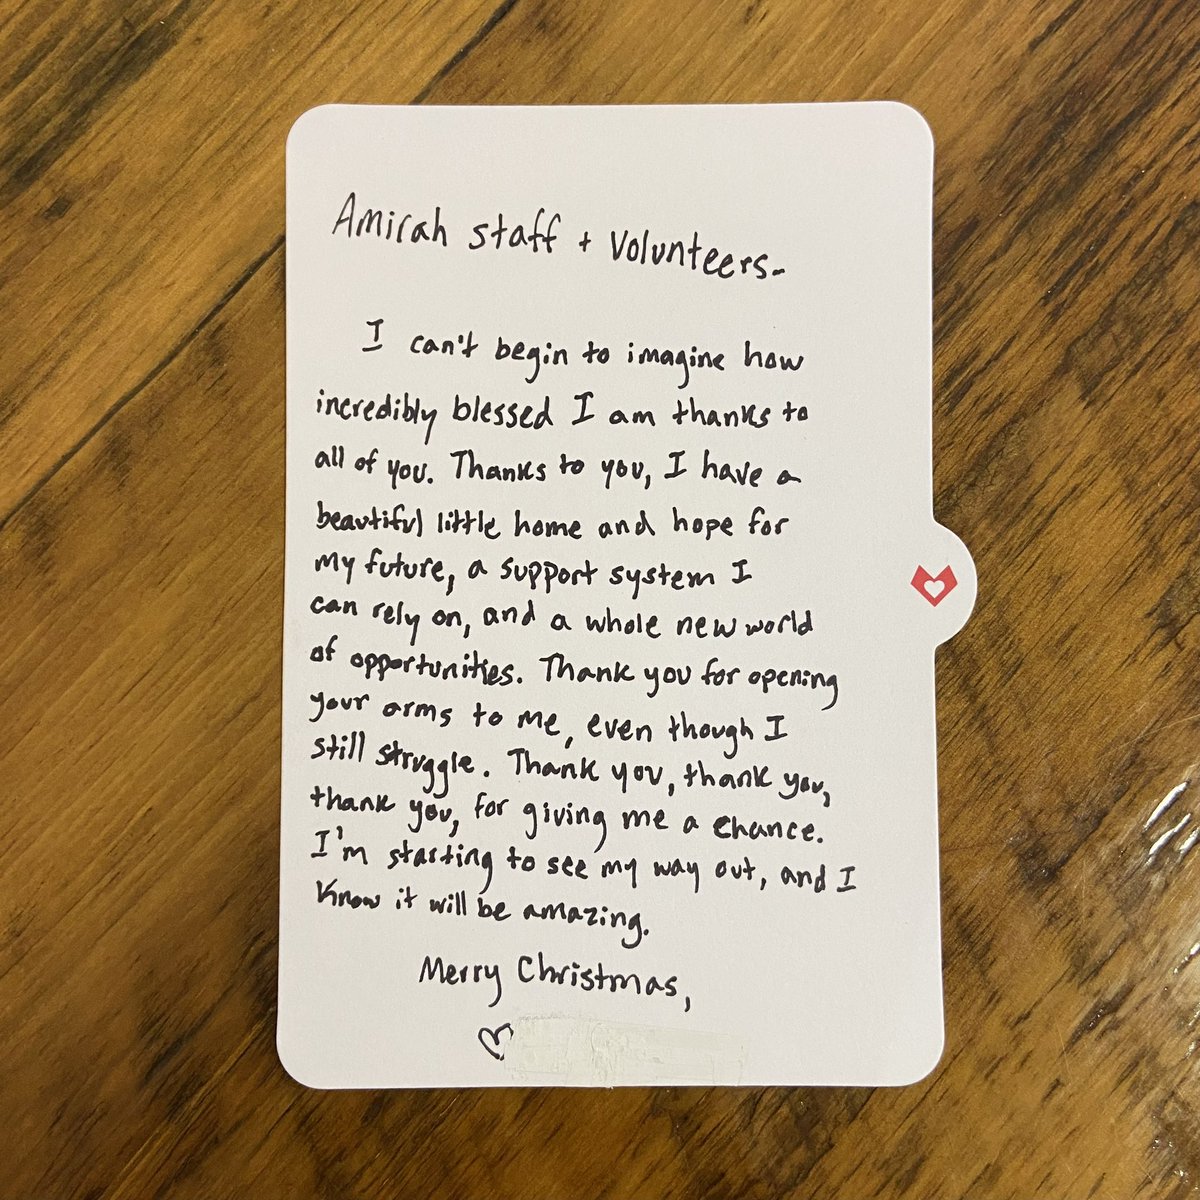 Amirah staff + Volunteers-
I can't begin to imagine how
incredibly blessed I am thanks to
all of you. Thanks to you, I have a
beautiful little home and hope for
my future, a support system I
can rely on, and a whole new world
of opportunities. Thank you for opening
your arms to me, even though I
still struggle. Thank you, thank you,
thank you, for giving me a chance.
I'm starting to see my way out, and I
know it will be amazing.
Merry Christmas,
♡